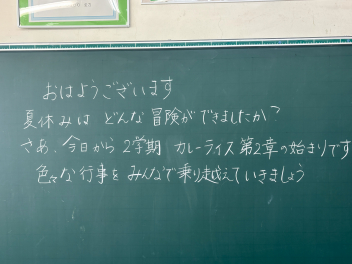 おはようございます
夏休みは どんな冒険ができましたか?
さあ、今日から 2学期 カレーライス 第2章の始まりです
色々な行事を みんなで乗り越えていきましょう